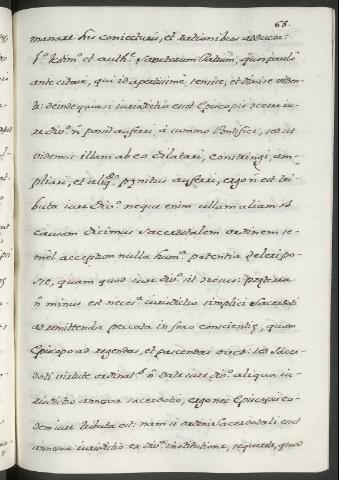 68.
manare his coniecturis, et rationibus adducor:
p.º testim.º et auth.º Sanctorum Patrum, quos paulo
ante citavi, qui id apertissime sensisse, et dixisse viden-
tur: deinde quia si iurisdictio esset Episcopis necess. iu-
re div.º ñ posset auferri à summo Pontifici, sed ut
videmus illam ab eo dilatari, constringi, am-
pliari, et aliq.º penitus auferri, ergo ñ est tri-
buta iure div.º neque enim ullam aliam ob
causam dicimus Sacerdotalem ordinem se-
mel acceptum nulla hum.ª potentia deleri pos-
se, quam quod iure div.º sit
ñ minus est necess.ª iurisdictio simplici Sacerdoti
ad remittenda peccata in foro conscientię, quam
Episcopo ad regendas, et pascendas oves: sed Sacer-
doti virtute ordinat.s ñ datur iure div.º aliqua iu-
risdictio annexa sacerdotio, ergo nec Episcopis eo-
dem iure tributa est: nam si ordini Sacerdotali esset
annexa iurisdictio ex div.ª institutione, sequeretur, quod